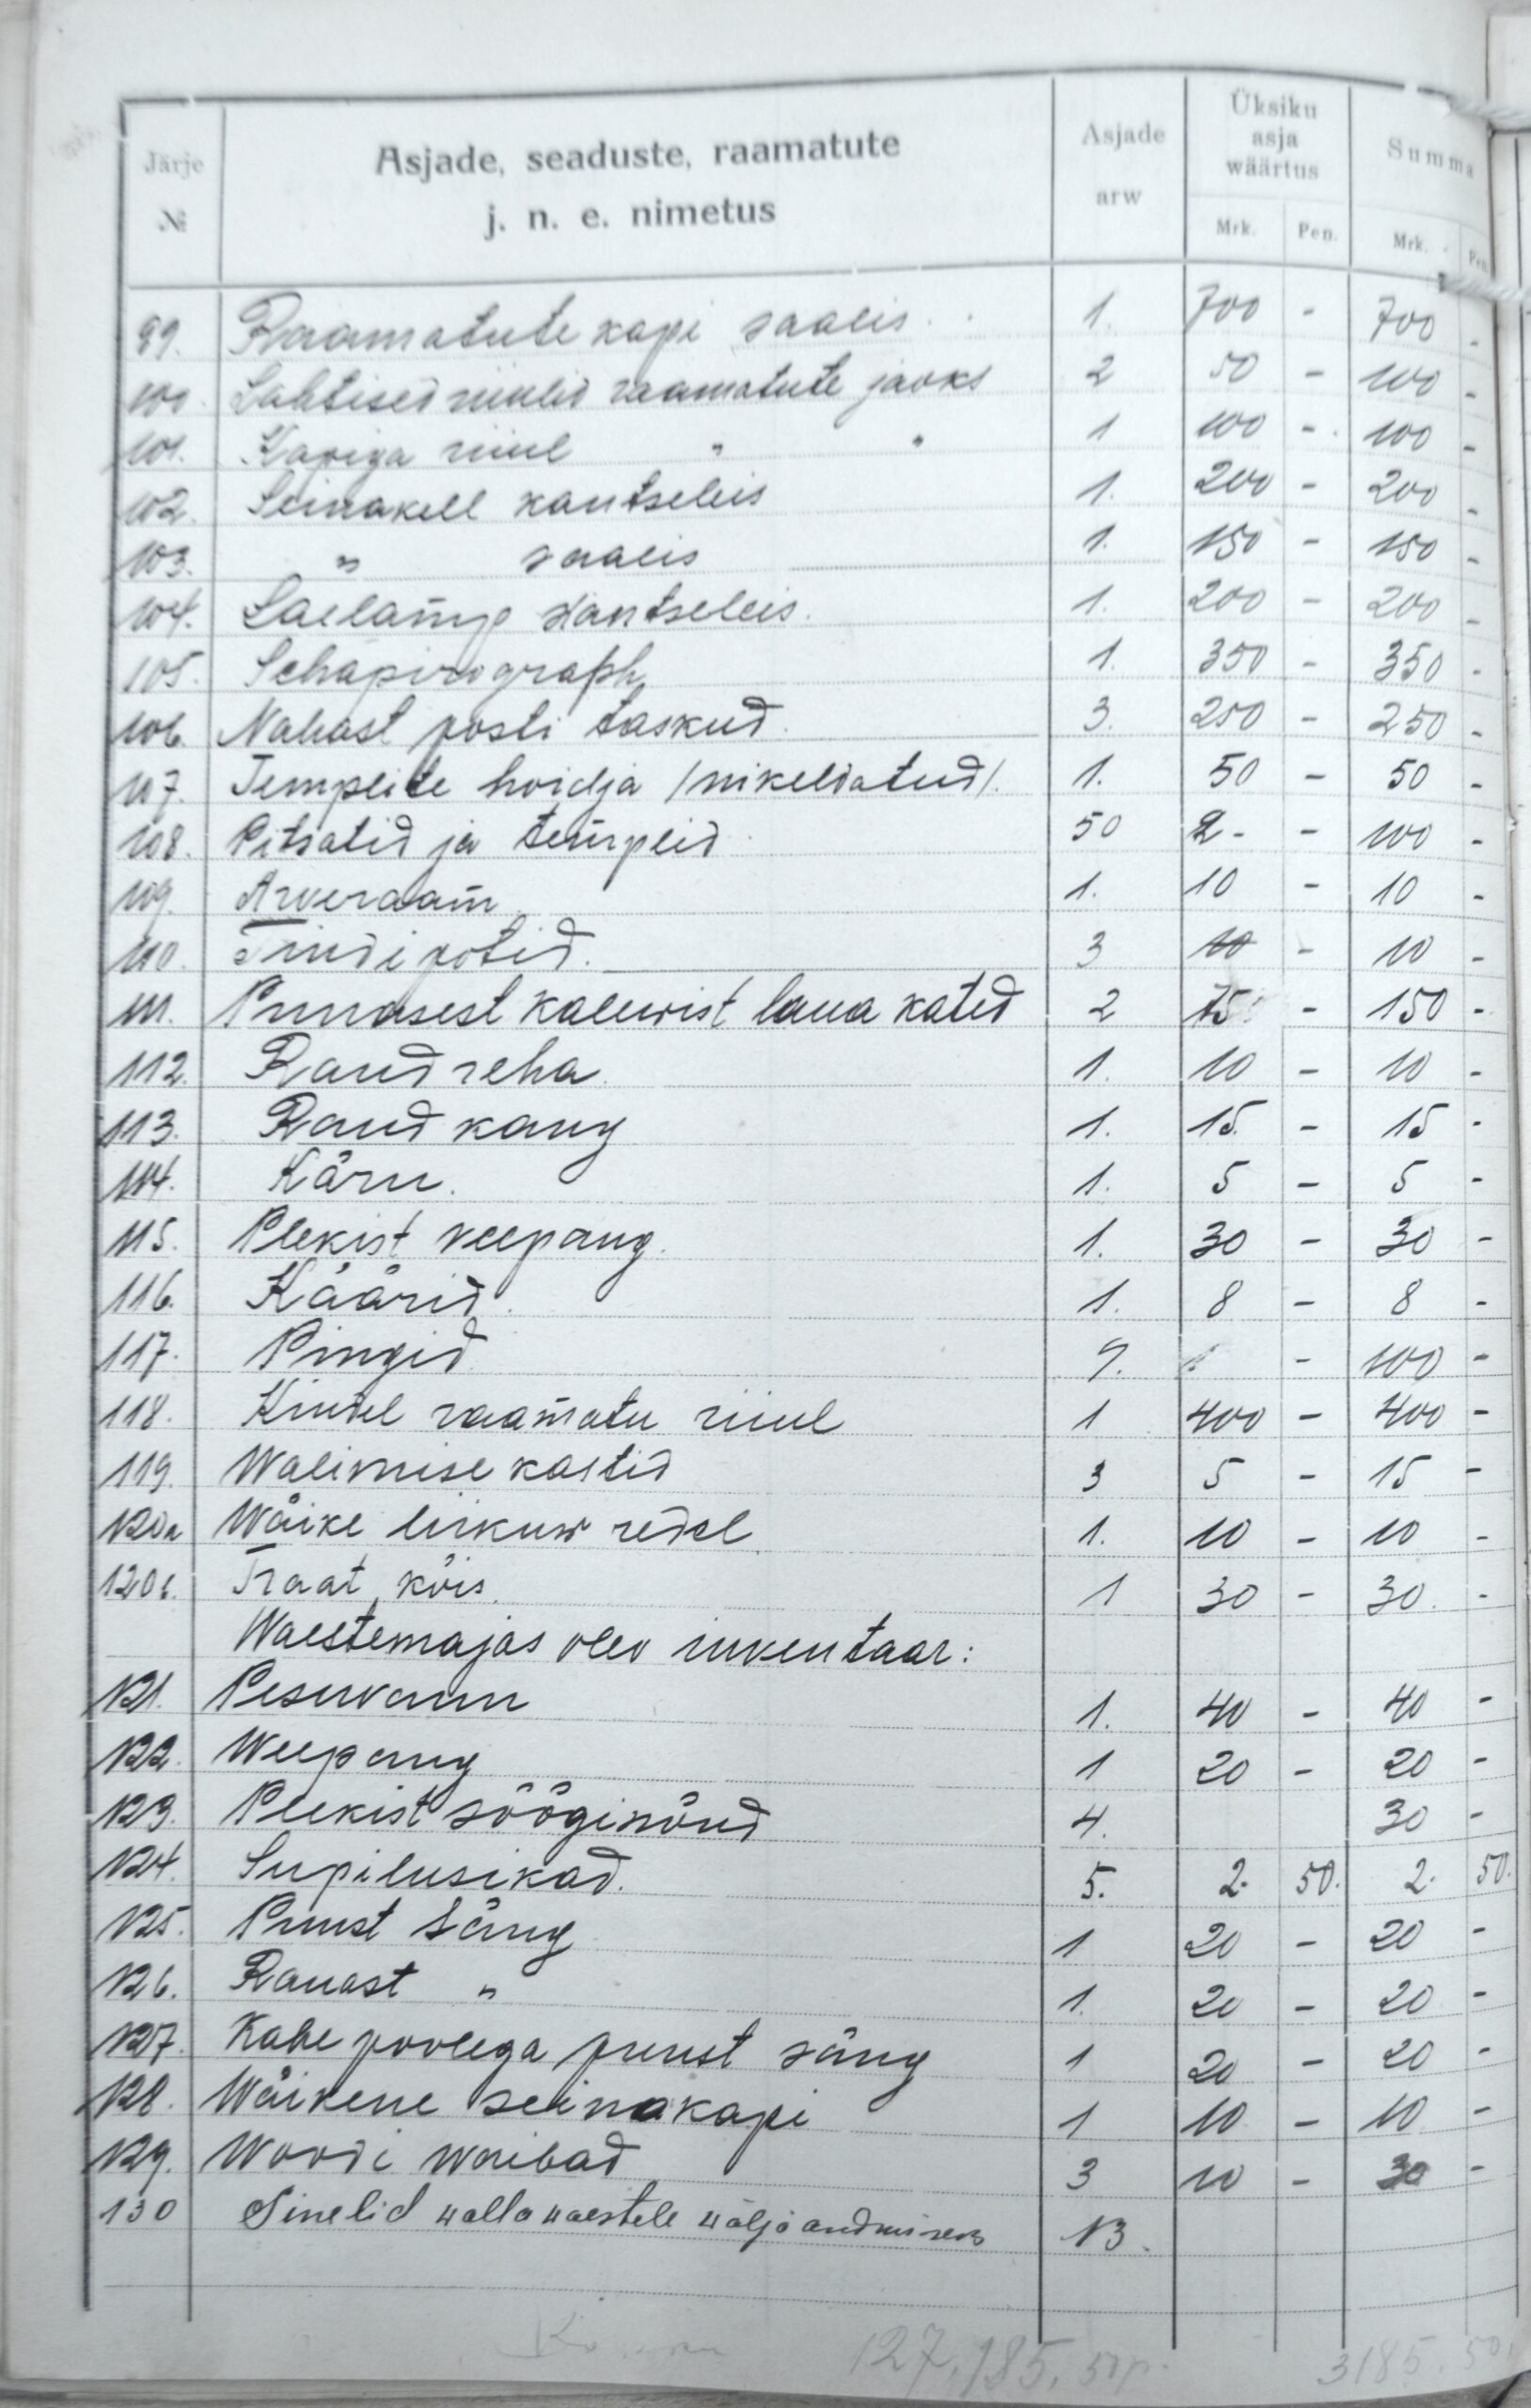 Järje № Asjade, seaduste, raamatute j. n. e. nimetus Asjade arw Üksiku asja wäärtus Mrk. Pen. Summa Mrk. Pen.
99. Raamatute kapi saalis. 1. 700 - 700 -
100. Lahtised riiulid raamatute jaoks 2 50 - 100 -
101. Kapiga riiul " " 1 100 - 100 -
102. Seinakell kantseleis 1. 200 - 200 -
103. " saalis 1. 150 - 150 -
104. Laelamp kantseleis. 1. 200 - 200 -
105. Schapirograph 1. 350 - 350 -
106. Nahast posti taskud. 3. 250 - 250 -
107. Templite hoidja /nikeldatud/. 1. 50 - 50 -
108. Pitsatid ja templid 50 2 - - 100 -
109. Arveraam 1. 10 - 10 -
110. Tindi potid. 3 10 - 10 -
111. Punasest kalewist laua kated 2 75 - 150 -
112. Raud reha. 1. 10 - 10 -
113. Raud kang 1. 15. - 15 -
114. Käru. 1. 5 - 5 -
115. Plekist veepang. 1. 30 - 30 -
116. Käärid. 1. 8 - 8 -
117. Pingid 9. - 100 -
118. Kindel raamatu riiul 1 400 - 400 -
119. Walimise kastid 3 5 - 15 -
120a Wäike liikuw redel. 1. 10 - 10 -
120b. Traat köis. 1 30 - 30. -
Waestemajas olev inventaar:
121. Pesuvann 1. 40 - 40 -
122. Weepang 1 20 - 20 -
123. Plekist sööginõud 4. 30 -
124. Supilusikad. 5. 2. 50. 2. 50.
125. Puust säng 1 20 - 20 -
126. Rauast " 1. 20 - 20 -
127. Kahe poolega puust säng 1 20 - 20 -
128. Wäikene seinakapi 1 10 - 10 -
129. Woodi waibad 3 10 - 30 -
130 Sinelid wallawaestele wälja andmiseks 13.
127,185. 50 p. 3185. 50